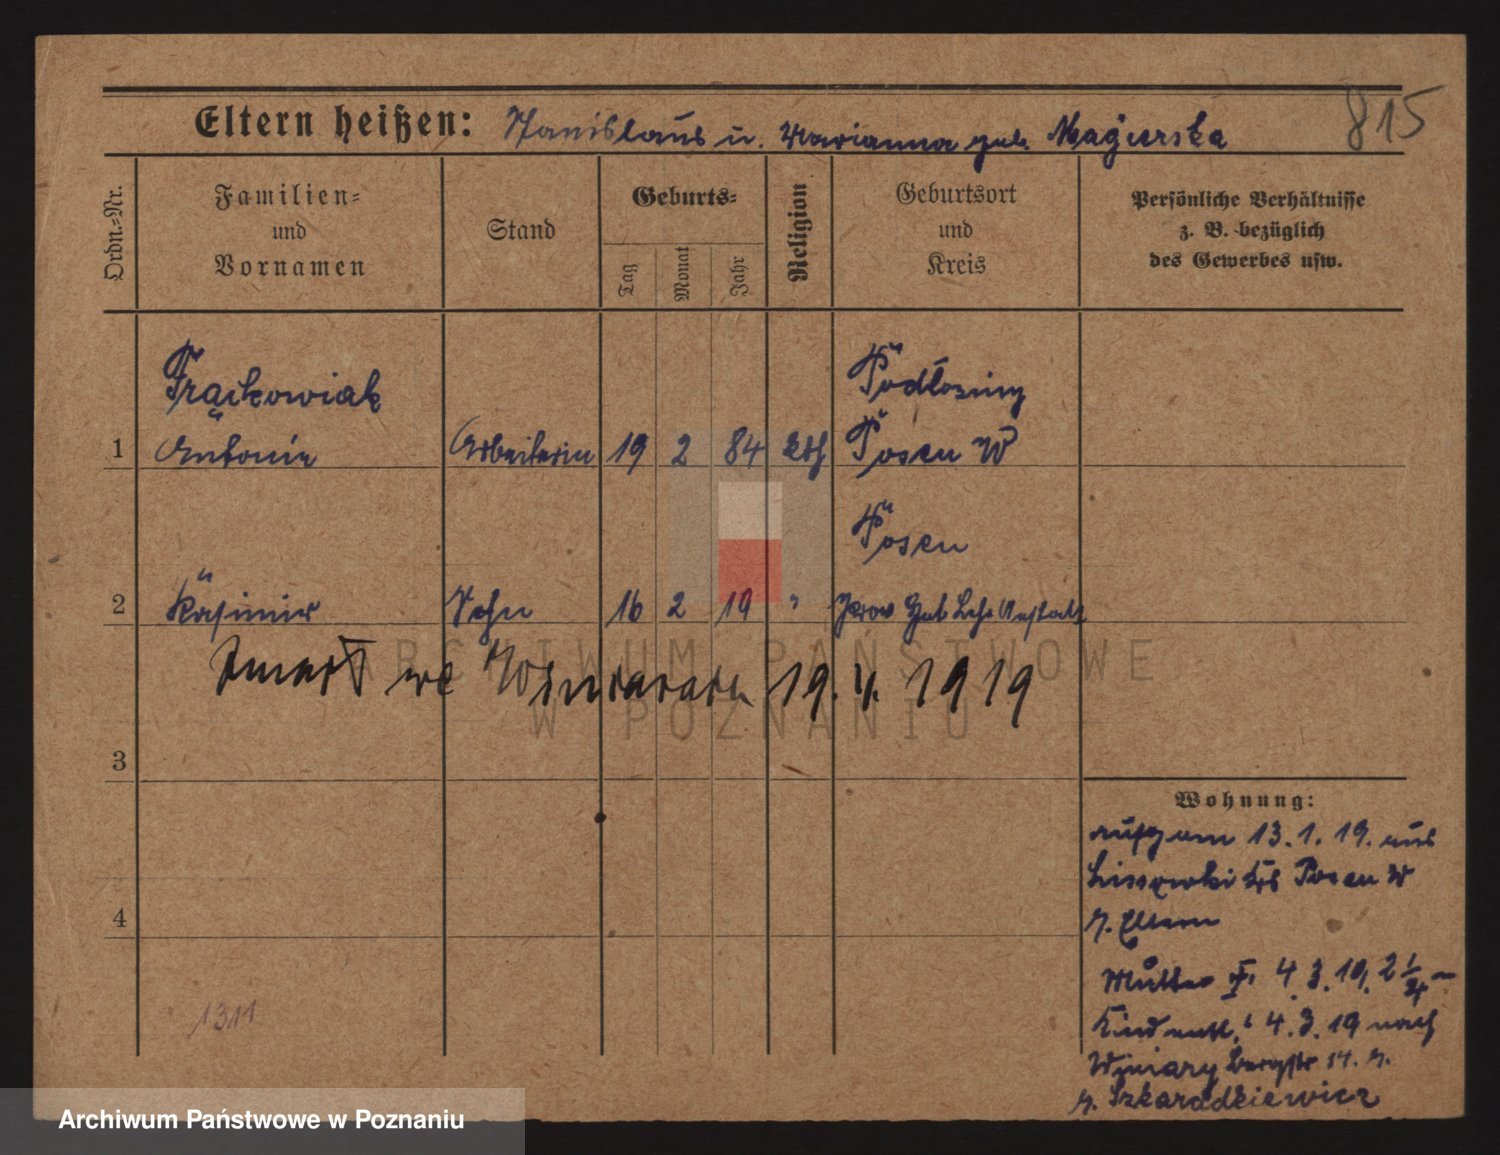 815
Eltern heißen: Stanislaus u. Marianna geb. Magierska
Ordn.=Nr.
Familien=
und
Vornamen
Stand
Geburts=
Tag
Monat
Jahr
Religion
Geburtsort
und
Kreis
Persönliche Verhältnisse
z. B. bezüglich
des Gewerbes usw.
Frąckowiak
Podłoziny
1 Antonie Arbeiterin 19 2 84 kth Posen W
Posen
2 Kasimir Sohn 16 2 19 " Prov Heb Lehr Anstalt
Zmarł we Winiarach 19. V. 1919
3
4
Wohnung:
aufg am 13.1.19. aus
Posen W
z. Eltern
Mutter 4.3.19. 2 1/4
Kind entl. 4.3.19 nach
Winiary Bergstr 14.
Szkaradkiewicz
1311
ARCHIWUM PAŃSTWOWE
W POZNANIU
Archiwum Państwowe w Poznaniu